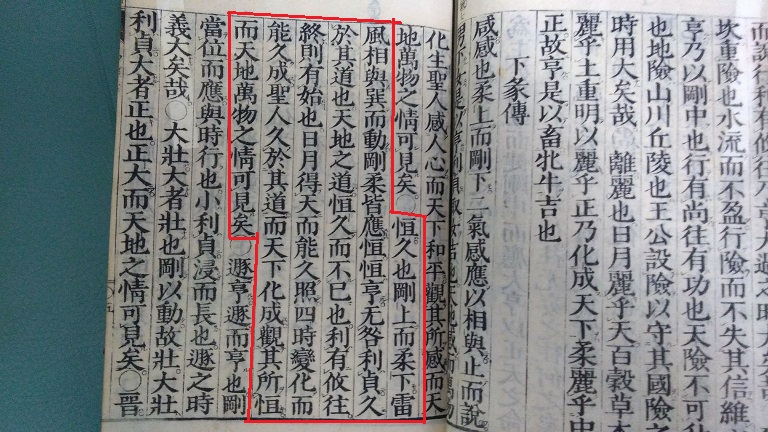 而說行利有攸往
坎重險也水流而不盈行險而不失其信維
亨乃以剛中也行有尚往有功也天險不可
也地險山川丘陵也王公設險以守其國險之
時用大矣哉 離麗也日月麗乎天百穀草木
麗乎土重明以麗乎正乃化成天下柔麗乎中
正故亨是以畜牝牛吉也
下彖傳
咸感也柔上而剛下二氣感應以相與止而說
男下女是以亨利貞取女吉也天地感而萬物
化生聖人感人心而天下和平觀其所感而天
地萬物之情可見矣○恒久也剛上而柔下雷
風相與巽而動剛柔皆應恒恒亨无咎利貞久
於其道也天地之道恒久而不已也利有攸往
終則有始也日月得天而能久照四時變化而
能久成聖人久於其道而天下化成觀其所恒
而天地萬物之情可見矣○遯亨遯而亨也剛
當位而應與時行也小利貞浸而長也遯之時
義大矣哉○大壯大者壯也剛以動故壯大壯
利貞大者正也正大而天地之情可見矣○晉